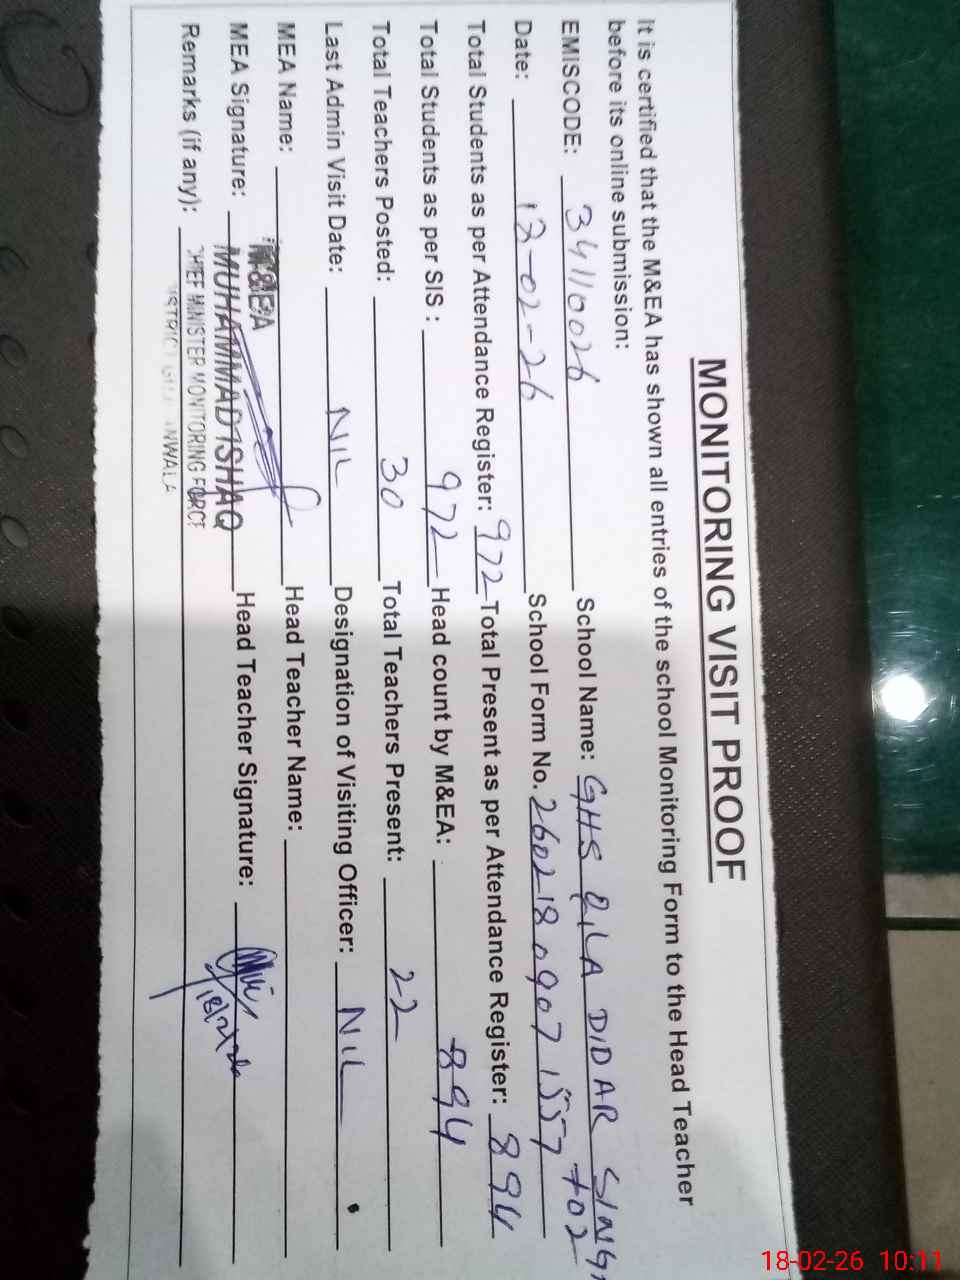 MONITORING VISIT PROOF
It is certified that the M&EA has shown all entries of the school Monitoring Form to the Head Teacher
before its online submission:
EMISCODE: 34110026 School Name: GHS QILA DIDAR SINGH
Date: 18-02-26 School Form No. 26021809071557702
Total Students as per Attendance Register: 972 Total Present as per Attendance Register: 894
Total Students as per SIS : 972 Head count by M&EA: 894
Total Teachers Posted: 30 Total Teachers Present: 22
Last Admin Visit Date: NIL Designation of Visiting Officer: NIL
MEA Name: M&EA Head Teacher Name:
MEA Signature: MUHAMMAD ISHAQ Head Teacher Signature:
18/2/26
Remarks (if any): CHIEF MINISTER MONITORING FORCE
DISTRICT
18-02-26 10:11